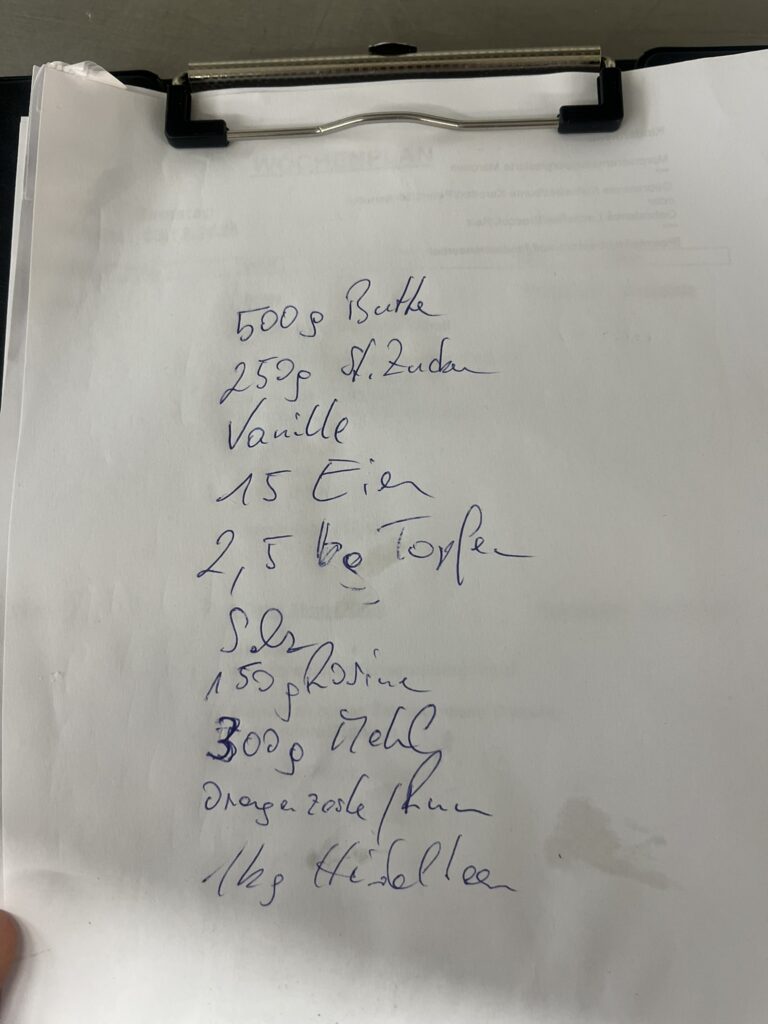 500g Butter
250g St. Zucker
Vanille
15 Eier
2,5 kg Topfen
Salz
150g Rosinen
300g Mehl
Orangenzeste / Rum
1kg Heidelbeer